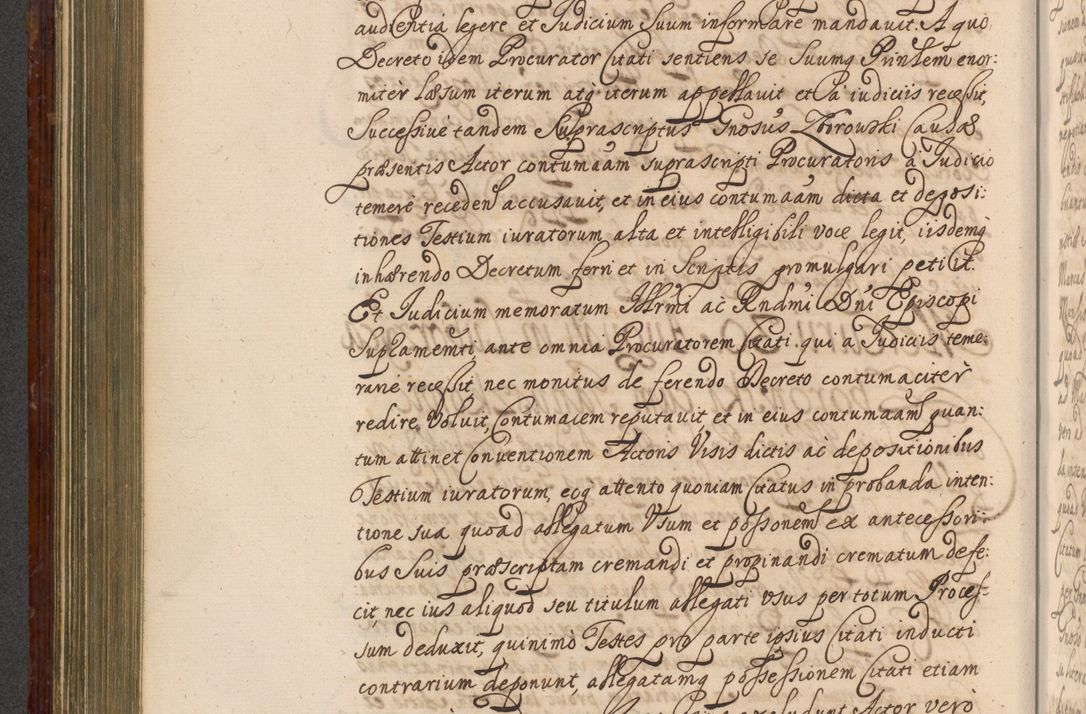 audientia legere et Judicium Suum informare mandavit. A quo
Decreto idem Procurator Citati sentiens se Suumq Prinlem enor:
miter læsum iterum atq iterum appellavit et a iudiciis recessit,
Successivè tandem Suprascriptus Gnosus Zborowski Causæ
præsentis Actor contumaam suprascripti Procuratoris a Judicio
temerè receden accusavit, et in eius contumaam dicta et deposi:
tiones Testium iuratorum alta et intelligibili voce legit, iisdemq
inhærendo Decretum ferri et in Scriptis promulgari petiit.
Et Judicium memoratum Illrmi ac Rndmi Dni Episcopi
ante omnia Procuratorem Citati qui a Judiciis teme:
rarie recessit nec monitus de ferendo Decreto contumaciter
redire Voluit, Contumacem reputavit, et in eius contumaam quan:
tum attinet Conventionem Actoris Visis dictis ac depositionibus
Testium iuratorum, eoq attento quoniam Citatus in probanda inten:
tione sua quoad allegatum Usum et possonem ex antecessori:
bus Suis præscriptam cremandi et propinandi crematum defe:
cit, nec ius aliquod seu titulum allegati usus per totum Proces-
sum deduxit, quinimò Testes pro parte ipsius Citati inducti
contrarium deponunt, allegatamq possessionem Citati etiam
excludunt Actor verò